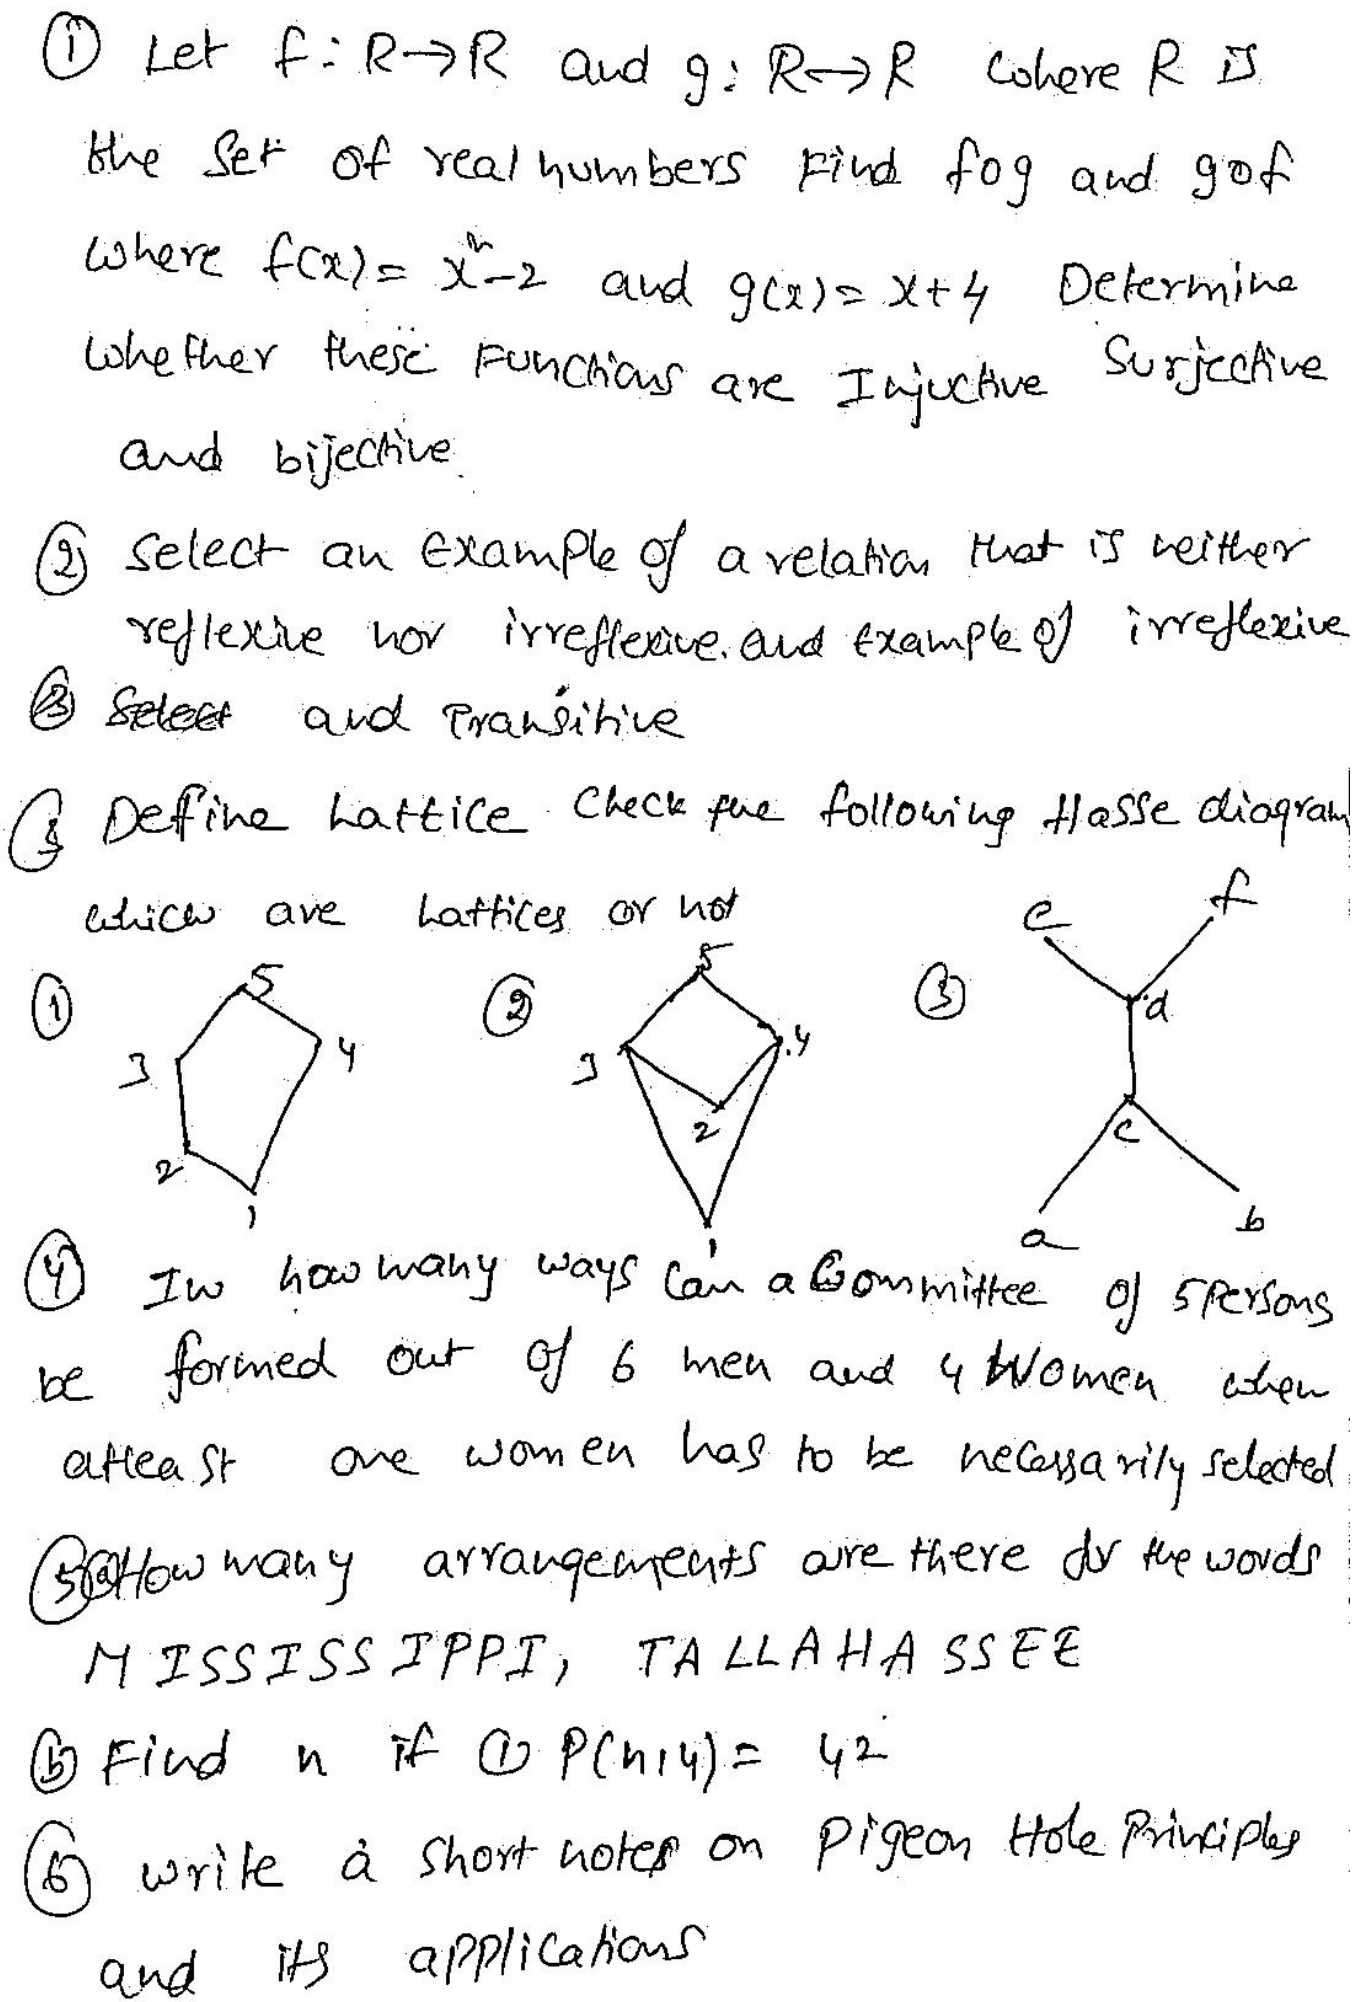 ① Let f: R→R and g: R→R where R is
the set of real numbers Find fog and gof
where f(x) = x²-2 and g(x) = x+4 Determine
whether these Functions are Injuctive Surjective
and bijective.
② Select an Example of a relation that is neither
reflexive nor irreflexive. and Example of irreflexive
③ Select and Transitive
③ Define Lattice Check the following Hasse diagram
which are Lattices or not
① 5 3 4 2 1
② 5 3 4 2 1
③ e f d c a b
④ In how many ways Can a Committee of 5 Persons
be formed out of 6 men and 4 Women when
atleast one women has to be necessarily selected
⑤ⓐ How many arrangements are there for the words
MISSISSIPPI, TALLAHASSEE
ⓑ Find n if ① P(n,4) = 42
⑥ write a short notes on Pigeon Hole Principles
and its applications